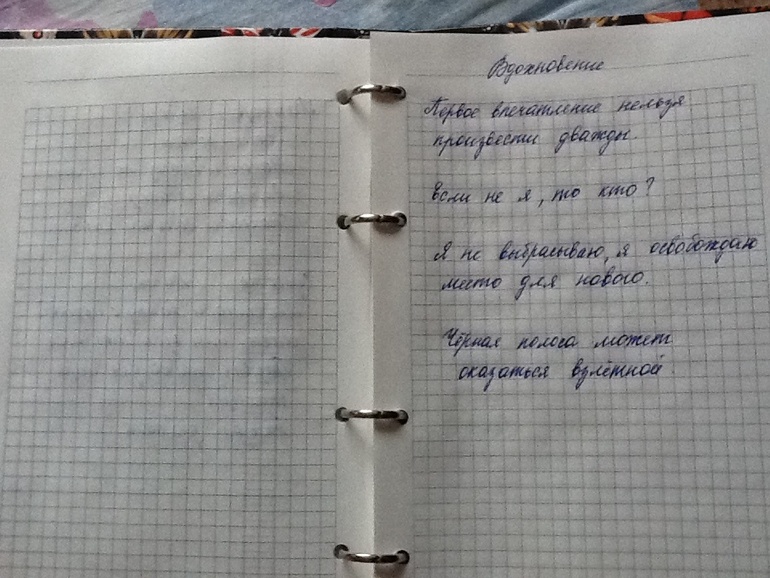 Вдохновение
Первое впечатление нельзя
произвести дважды.
Если не я, то кто?
Я не выбрасываю, я освобождаю
место для нового.
Чёрная полоса может
оказаться взлётной.